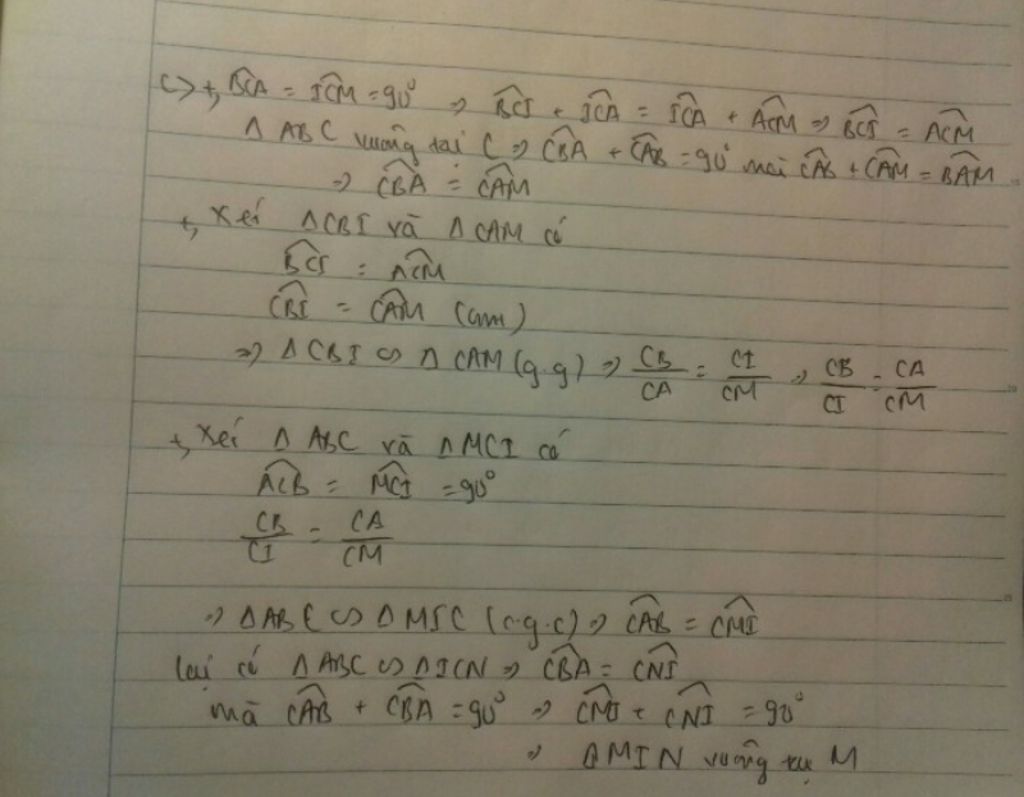 c) +, BCA = ICM = 90° ⇒ BCI + ICA = ICA + ACM ⇒ BCI = ACM
Δ ABC vuông tại C ⇒ CBA + CAB = 90° mà CAB + CAM = BAM
⇒ CBA = CAM
+, Xét ΔCBI và ΔCAM có
BCI = ACM
CBI = CAM (cm)
⇒ ΔCBI ∽ ΔCAM (g.g) ⇒ CB/CA = CI/CM ⇒ CB/CI = CA/CM
+, Xét Δ ABC và ΔMCI có
ACB = MCI = 90°
CB/CI = CA/CM
⇒ ΔABC ∽ ΔMIC (c.g.c) ⇒ CAB = CMI
lại có ΔABC ∽ ΔICN ⇒ CBA = CNI
mà CAB + CBA = 90° ⇒ CMI + CNI = 90°
⇒ ΔMIN vuông tại M